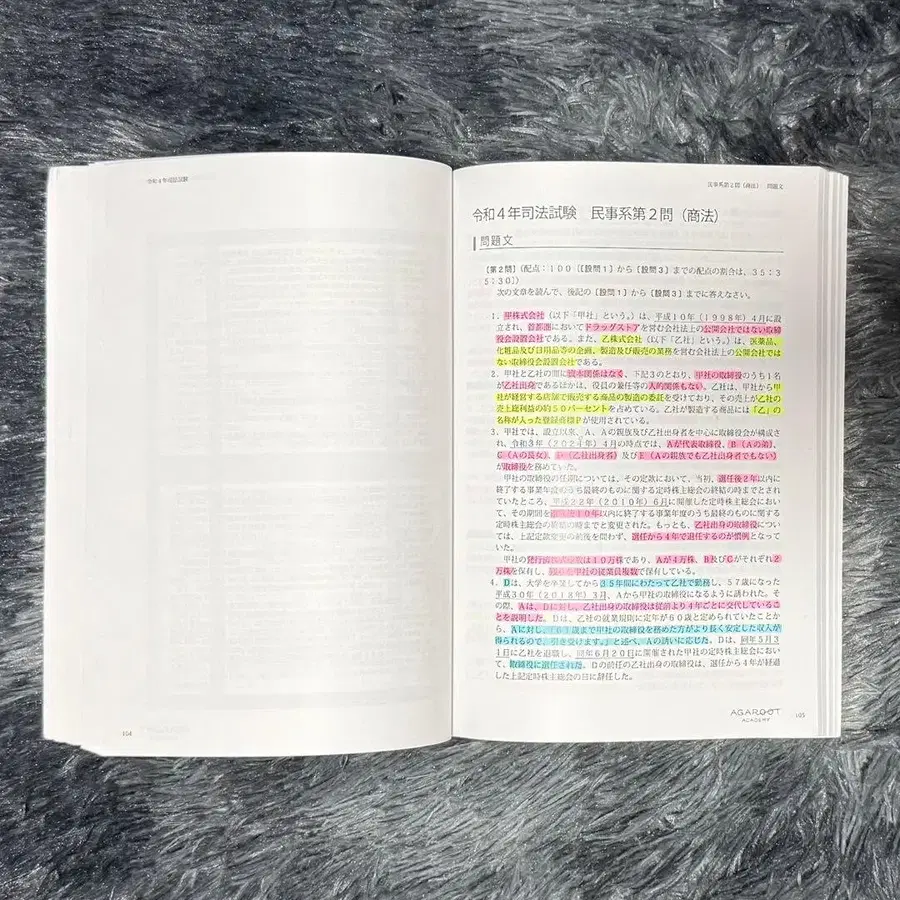 令和４年司法試験
104
民事系第２問（商法）　問題文
令和４年司法試験　民事系第２問（商法）
問題文
〔第２問〕（配点：１００〔〔設問１〕から〔設問３〕までの配点の割合は、３５：３
５：３０〕）
次の文章を読んで、後記の〔設問１〕から〔設問３〕までに答えなさい。
１．甲株式会社（以下「甲社」という。）は、平成１０年（１９９８年）４月に設
立され、首都圏においてドラッグストアを営む会社法上の公開会社ではない取締
役会設置会社である。また、乙株式会社（以下「乙社」という。）は、医薬品、
化粧品及び日用品等の企画、製造及び販売の業務を営む会社法上の公開会社では
ない取締役会設置会社である。
２．甲社と乙社の間に資本関係はなく、下記３のとおり、甲社の取締役のうち１名
が乙社出身であるほかは、役員の兼任等の人的関係もない。乙社は、甲社から甲
社が経営する店舗で販売する商品の製造の委託を受けており、その売上が乙社の
売上総利益の約５０パーセントを占めている。乙社が製造する商品には「乙」の
名称が入った登録商標Ｐが使用されている。
３．甲社では、設立以来、Ａ、Ａの親族及び乙社出身者を中心に取締役会が構成さ
れ、令和３年（２０２１年）４月の時点では、Ａが代表取締役、Ｂ（Ａの弟）、
Ｃ（Ａの長女）、（乙社出身者）及びＥ（Ａの親族でも乙社出身者でもない）
が取締役を務めていた。
甲社の取締役の任期については、その定款において、当初、選任後２年以内に
終了する事業年度のうち最終のものに関する定時株主総会の終結の時までとされ
ていたところ、平成２２年（２０１０年）６月に開催した定時株主総会におい
て、その期間を選任後１０年以内に終了する事業年度のうち最終のものに関する
定時株主総会の終結の時までと変更された。もっとも、乙社出身の取締役につい
ては、上記定款変更の前後を問わず、選任から４年で退任するのが慣例となって
いた。
甲社の発行済株式総数は１０万株であり、Ａが４万株、Ｂ及びＣがそれぞれ２
万株を保有し、甲社の従業員複数で保有している。
４．Ｄは、大学を卒業してから３５年間にわたって乙社で勤務し、５７歳になった
平成３０年（２０１８年）３月、Ａから甲社の取締役になるように誘われた。そ
の際、Ａは、Ｄに対し、乙社出身の取締役は従前より４年ごとに交代しているこ
とを説明した。Ｄは、乙社の就業規則に定年が６０歳と定められていたことか
ら、Ａに対し、「６１歳まで甲社の取締役を務めた方がより長く安定した収入が
得られるので、引き受けます。」と述べ、Ａの誘いに応じた。Ｄは、同年５月３
１日に乙社を退職し、同年６月２０日に開催された甲社の定時株主総会におい
て、取締役に選任された。Ｄの前任の乙社出身の取締役は、選任から４年が経過
した上記定時株主総会の日に辞任した。
AGAROOT
ACADEMY
105